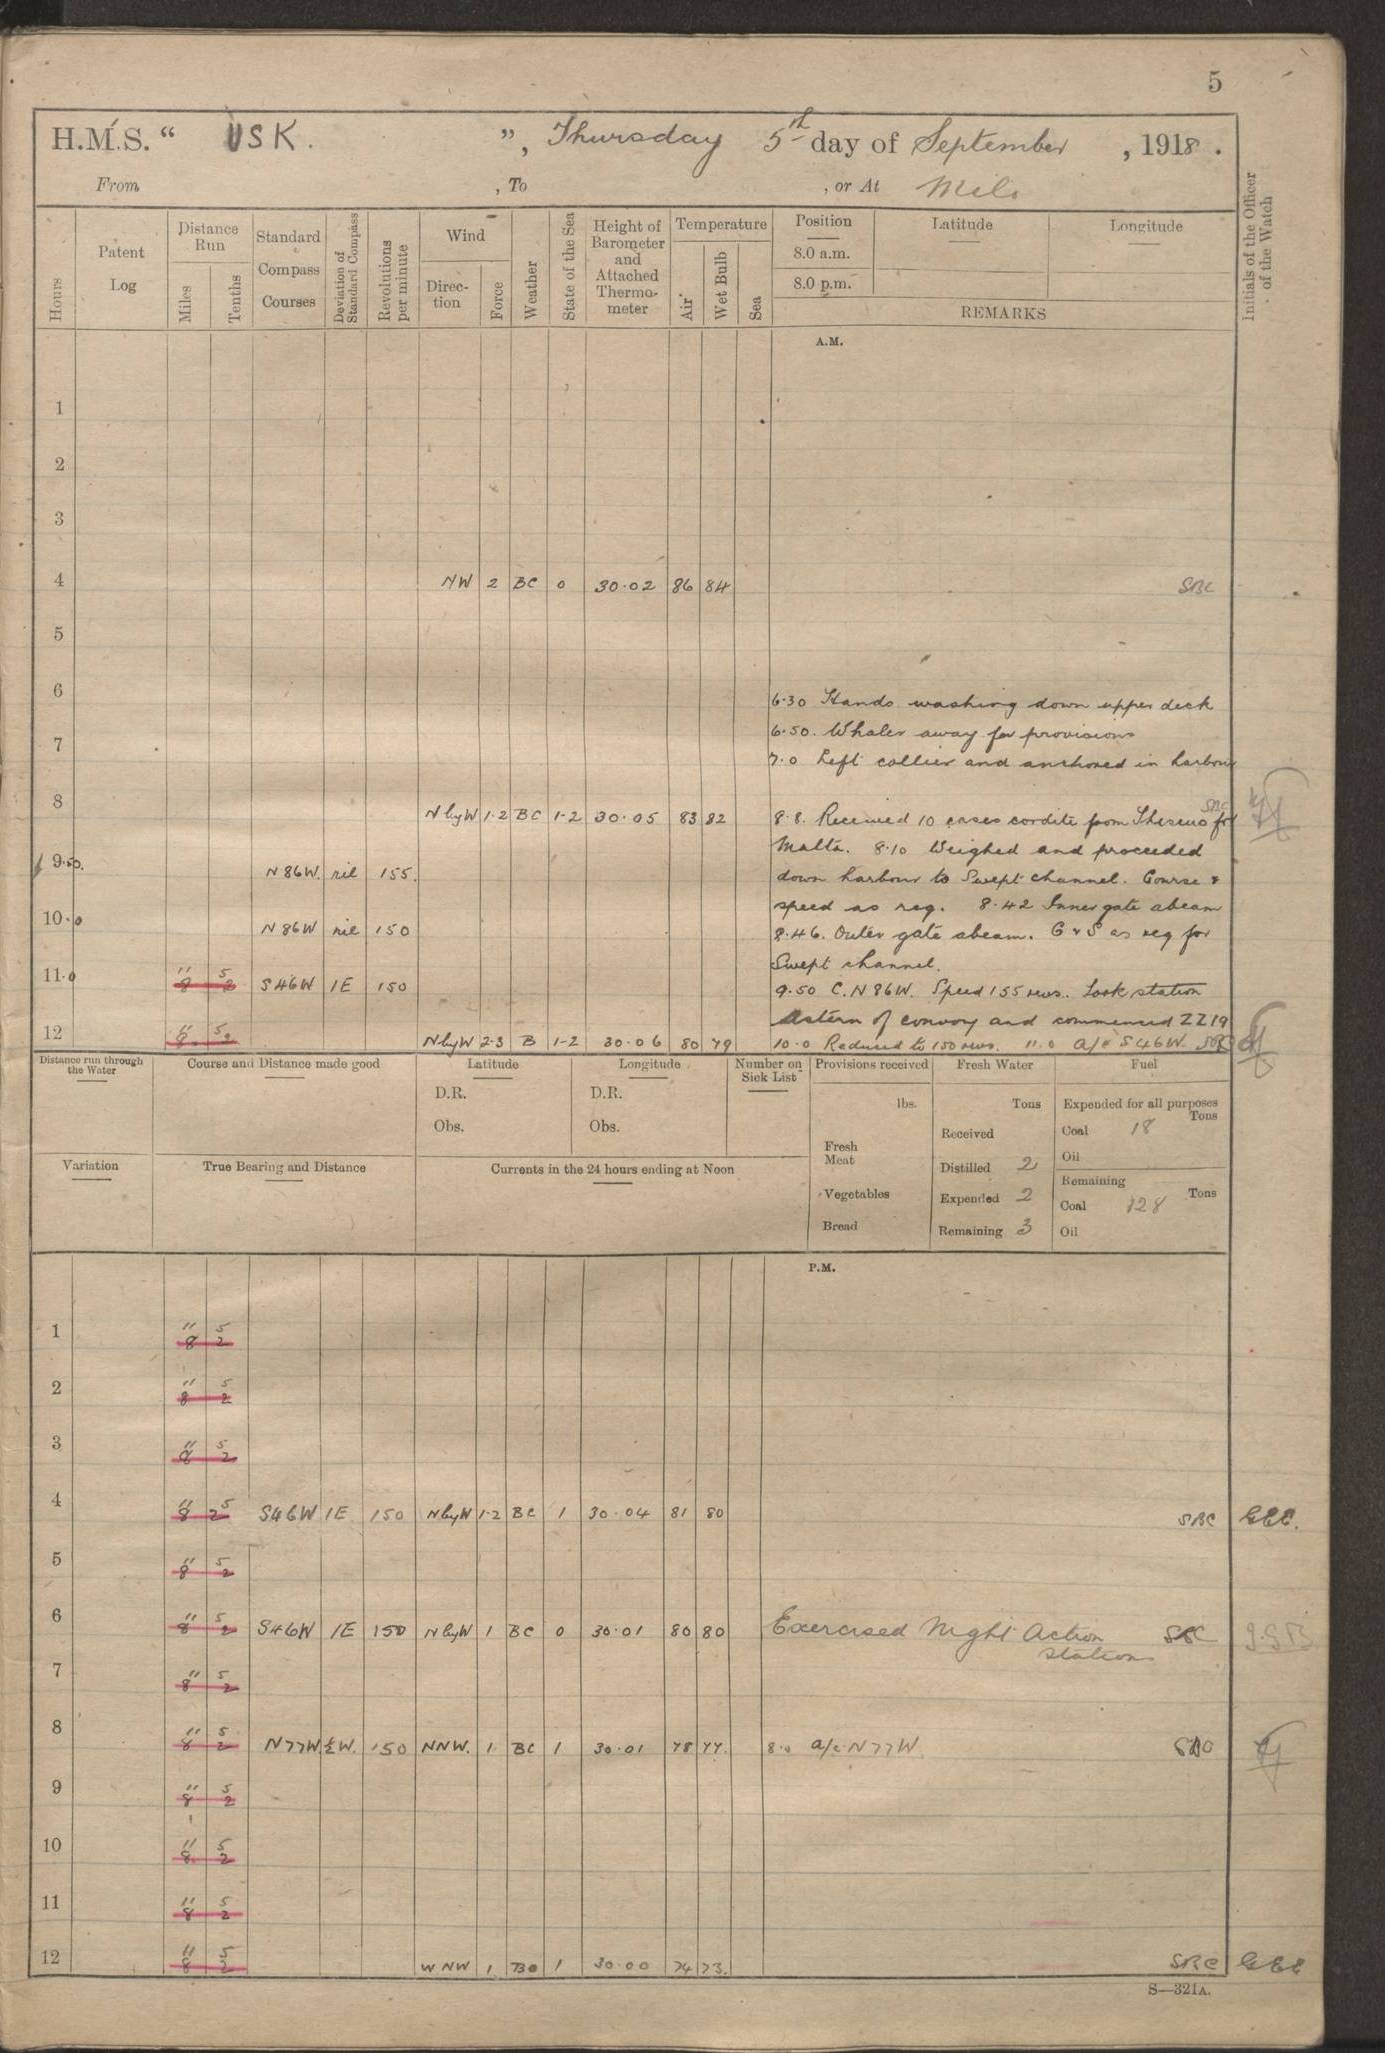 5
H.M.S. " USK. ", Thursday 5th day of September, 1918.
From , To , or At Milo
Hours
Patent Log
Distance Run
Miles
Tenths
Standard Compass Courses
Deviation of Standard Compass
Revolutions per minute
Wind
Direction
Force
Weather
State of the Sea
Height of Barometer and Attached Thermometer
Temperature
Air
Wet Bulb
Sea
Position
8.0 a.m.
8.0 p.m.
Latitude
Longitude
REMARKS
Initials of the Officer of the Watch
A.M.
1
2
3
4 NW 2 BC 0 30.02 86 84 SBC
5
6
6.30 Hands washing down upper deck
6.50. Whaler away for provisions
7
7.0 Left collier and anchored in harbour
SBC
8 NbyW 1-2 BC 1-2 30.05 83 82 8.8. Received 10 cases cordite from Theseus for
Malta. 8.10 Weighed and proceeded
9.50. N86W. nil 155. down harbour to Swept channel. Course &
speed as req. 8.42 Inner gate abeam
10.0 N86W nil 150 8.46. Outer gate abeam. C & S as req for
Swept channel.
11.0 11 5 8 2 S46W 1E 150 9.50 C. N86W. Speed 155 revs. Took station
Astern of convoy and commenced ZZ19
12 11 5 8 2 NbyW 2-3 B 1-2 30.06 80 79 10.0 Reduced to 150 revs. 11.0 a/c S46W. SBC
Distance run through the Water
Course and Distance made good
Latitude
D.R.
Obs.
Longitude
D.R.
Obs.
Number on Sick List
Provisions received
lbs.
Fresh Meat
Vegetables
Bread
Fresh Water
Tons
Received
Distilled 2
Expended 2
Remaining 3
Fuel
Expended for all purposes
Tons
Coal 18
Oil
Remaining
Tons
Coal 128
Oil
Variation
True Bearing and Distance
Currents in the 24 hours ending at Noon
P.M.
1 11 5 8 2
2 11 5 8 2
3 11 5 8 2
4 11 5 8 2 S46W 1E 150 NbyW 1-2 BC 1 30.04 81 80 SBC GEE.
5 11 5 8 2
6 11 5 8 2 S46W 1E 150 NbyW 1 BC 0 30.01 80 80 Exercised Night Action SBC
Stations
7 11 5 8 2
8 11 5 8 2 N77W ½W. 150 NNW. 1 BC 1 30.01 78 77. 8.0 a/c N77W
9 11 5 8 2
10 11 5 8 2
11 11 5 8 2
12 11 5 8 2 WNW 1 BC 1 30.00 74 73. SBC GEE
S—321A.